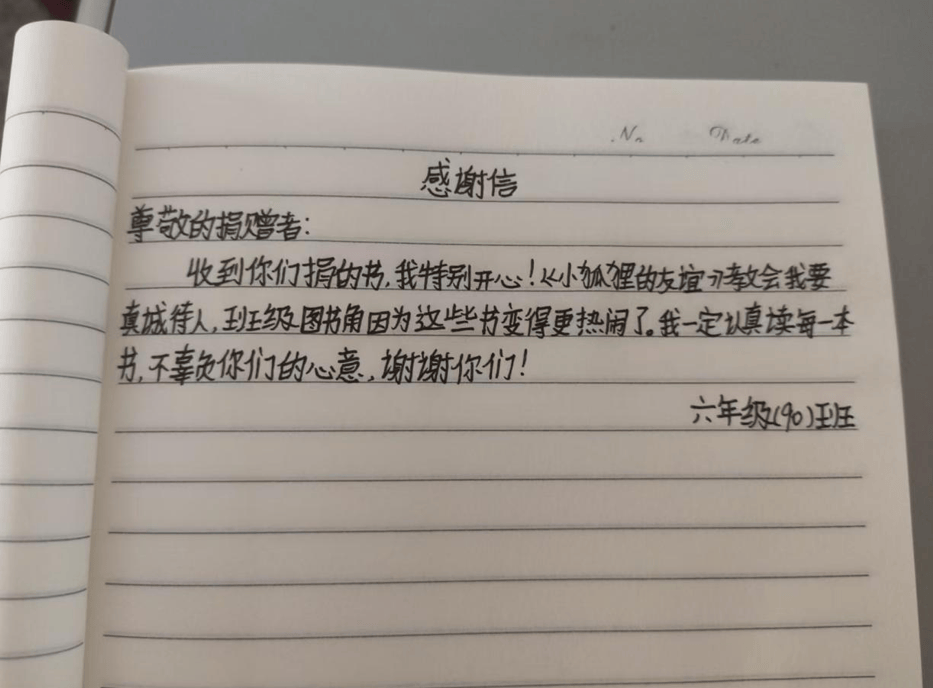 No Date
感谢信
尊敬的捐赠者:
收到你们捐的书,我特别开心!《小狐狸的友谊》教会我要
真诚待人,班级图书角因为这些书变得更热闹了。我一定认真读每一本
书,不辜负你们的心意,谢谢你们!
六年级(90)班